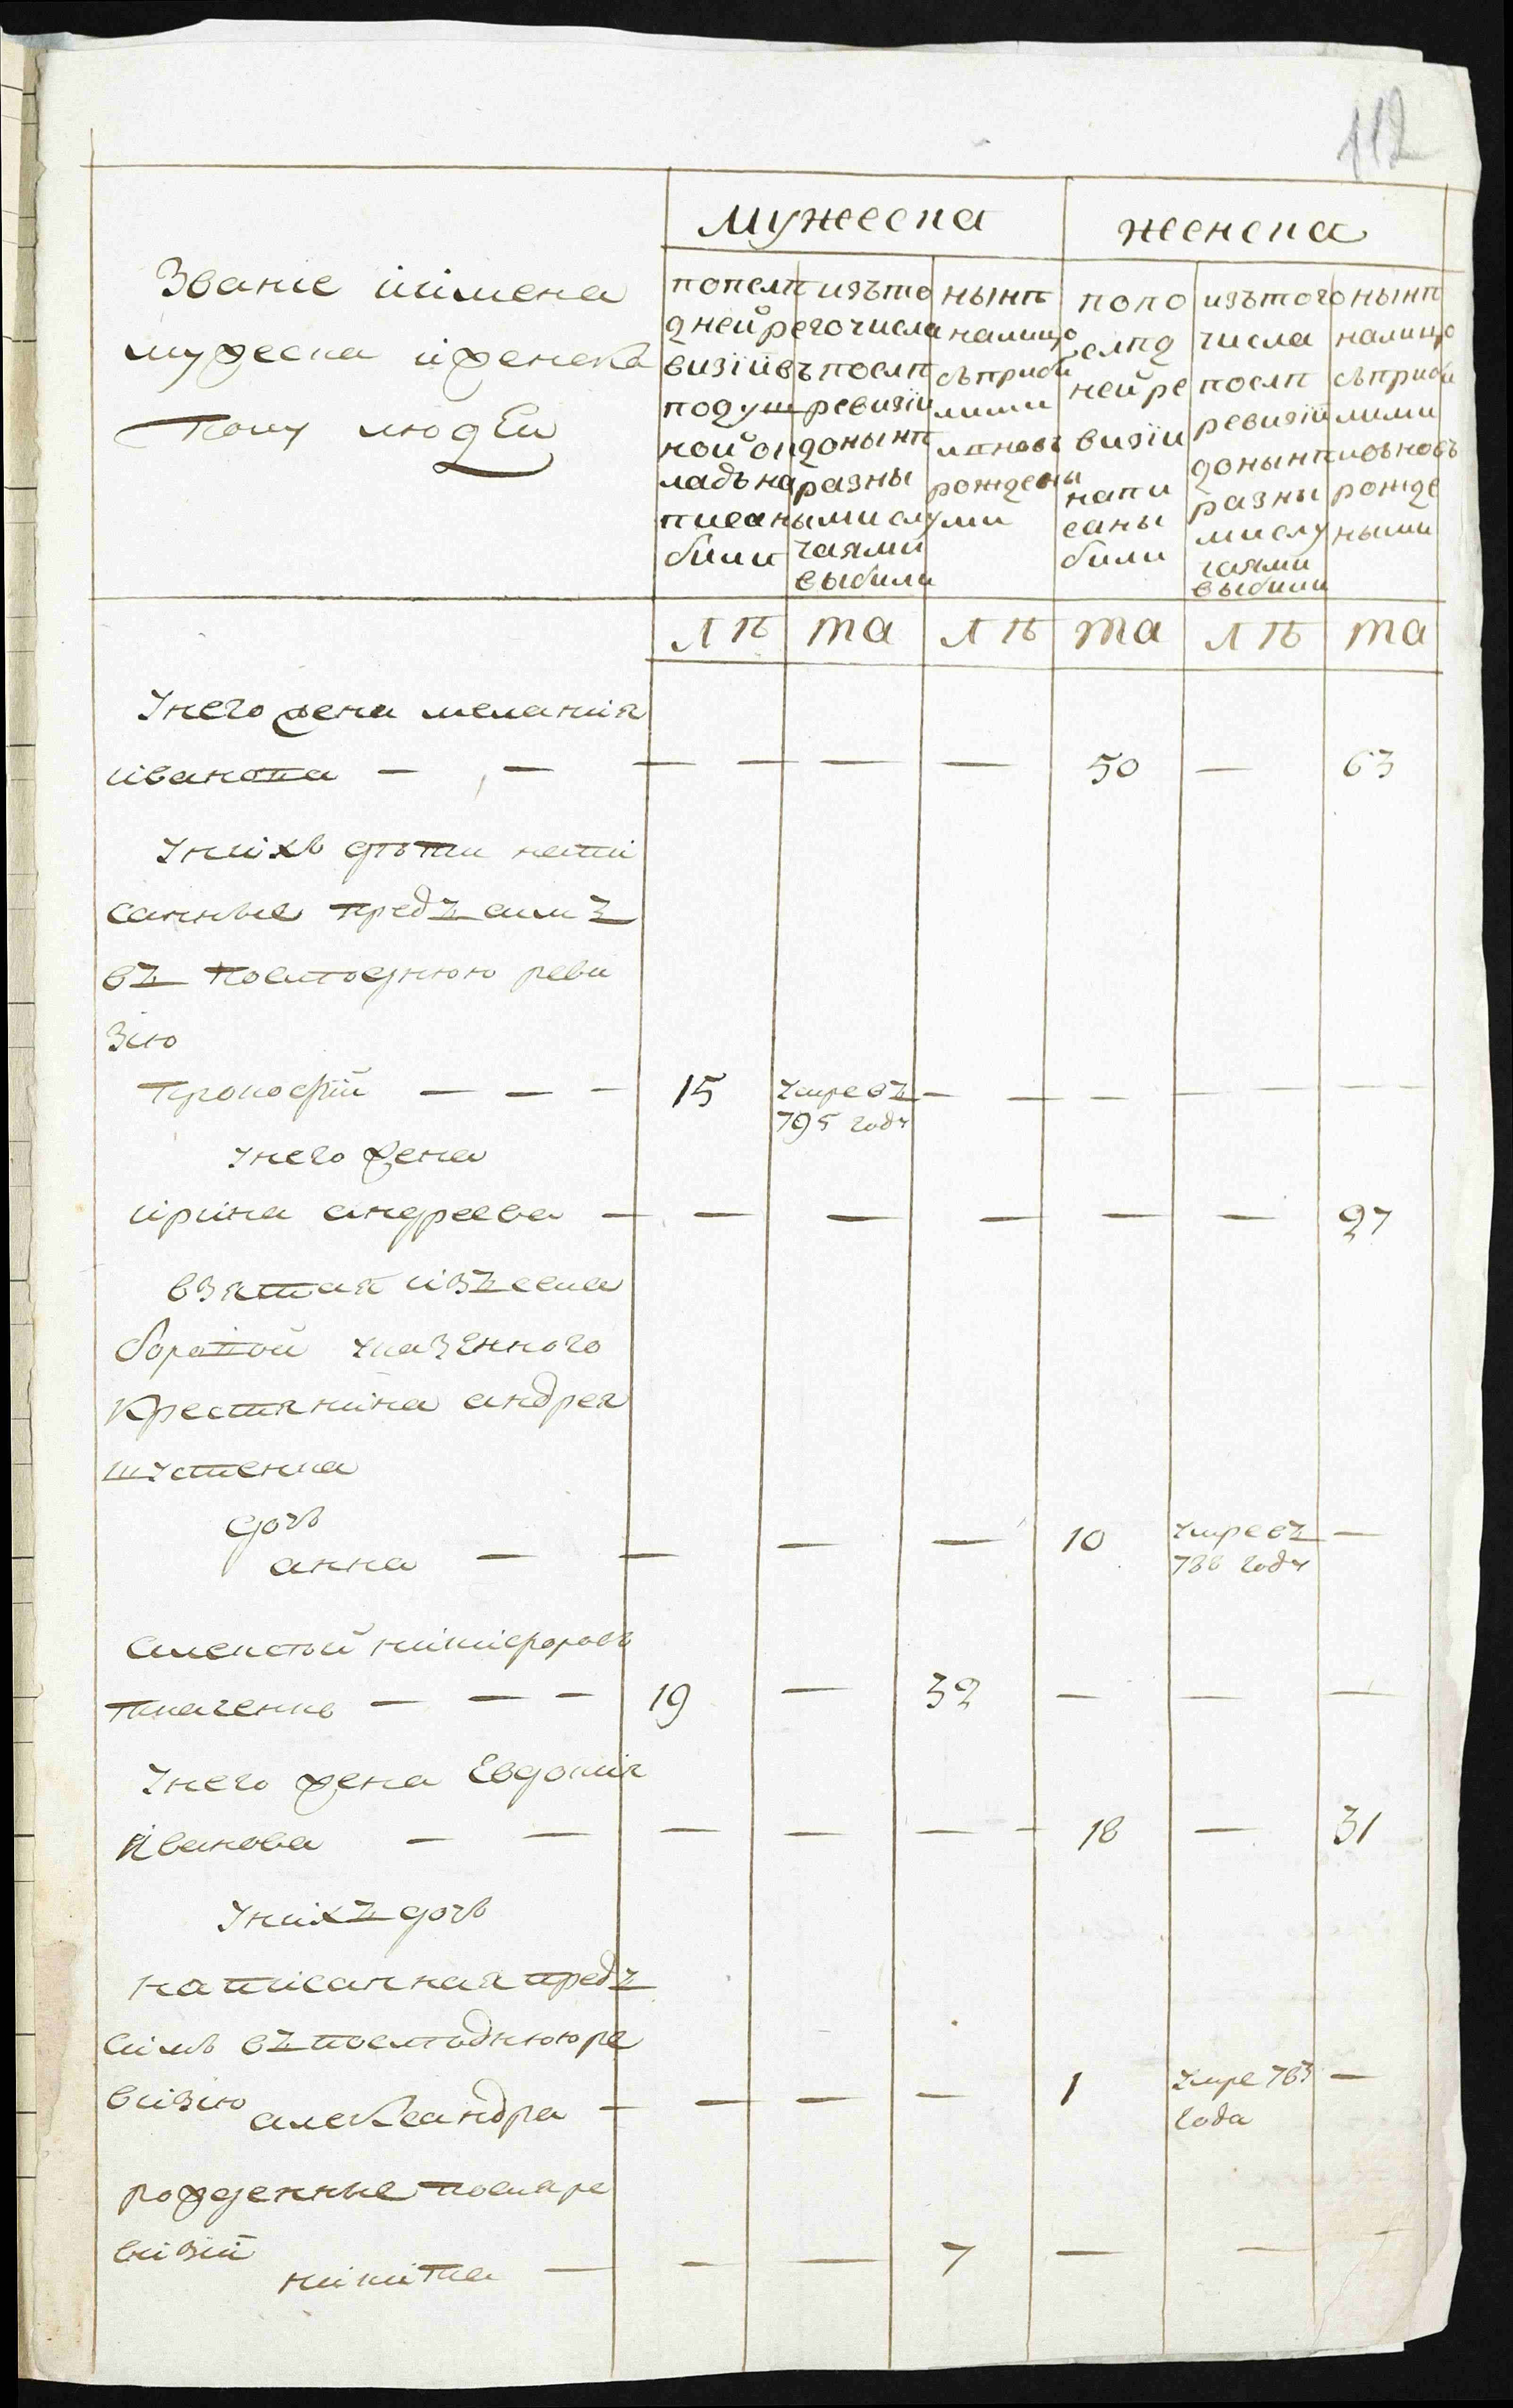 112
мужеска
женска
Званіе иімена
мужеска иженска
полу людей
попслѣ
дней ре
визіи въ
подуш
ной ок
ладъ на
писаны
били
изъто
го числа
послѣ
ревизіи
до нынѣ
разны
ми слу
чаями
выбили
нынѣ
налицо
съприбы
лыми
и новъ
рожденны
ми
попо
слѣд
ней ре
визіи
напи
саны
били
изътого
числа
послѣ
ревизіи
до нынѣ
разны
ми слу
чаями
выбили
нынѣ
налицо
съприбы
лыми
и вновь
рожде
ными
лѣ та лѣ та лѣ та
Унего жена меланія
иванова — — — — — — 50 — 63
Унихъ дѣти напи
санные предъ симъ
въ последнюю реви
зію
прокофій — — — 15 умре въ — — — — —
795 году
унего жена
ирина андреева — — — — — — 27
взятая изъ села
боратой указенного
крестянина андрея
шустенка
дочь
анна — — — — 10 умре въ —
788 году
алексѣй никифоровъ
ткаченко — — — 19 — 32 — — —
Унего жена Евдокія
Иванова — — — — — — 18 — 31
Унихъ дочь
написанная предъ
симъ въ последнюю ре
визію александра — — — — 1 умре 783 —
года
рожденные послѣ ре
визіи
никита — — — 7 — — —